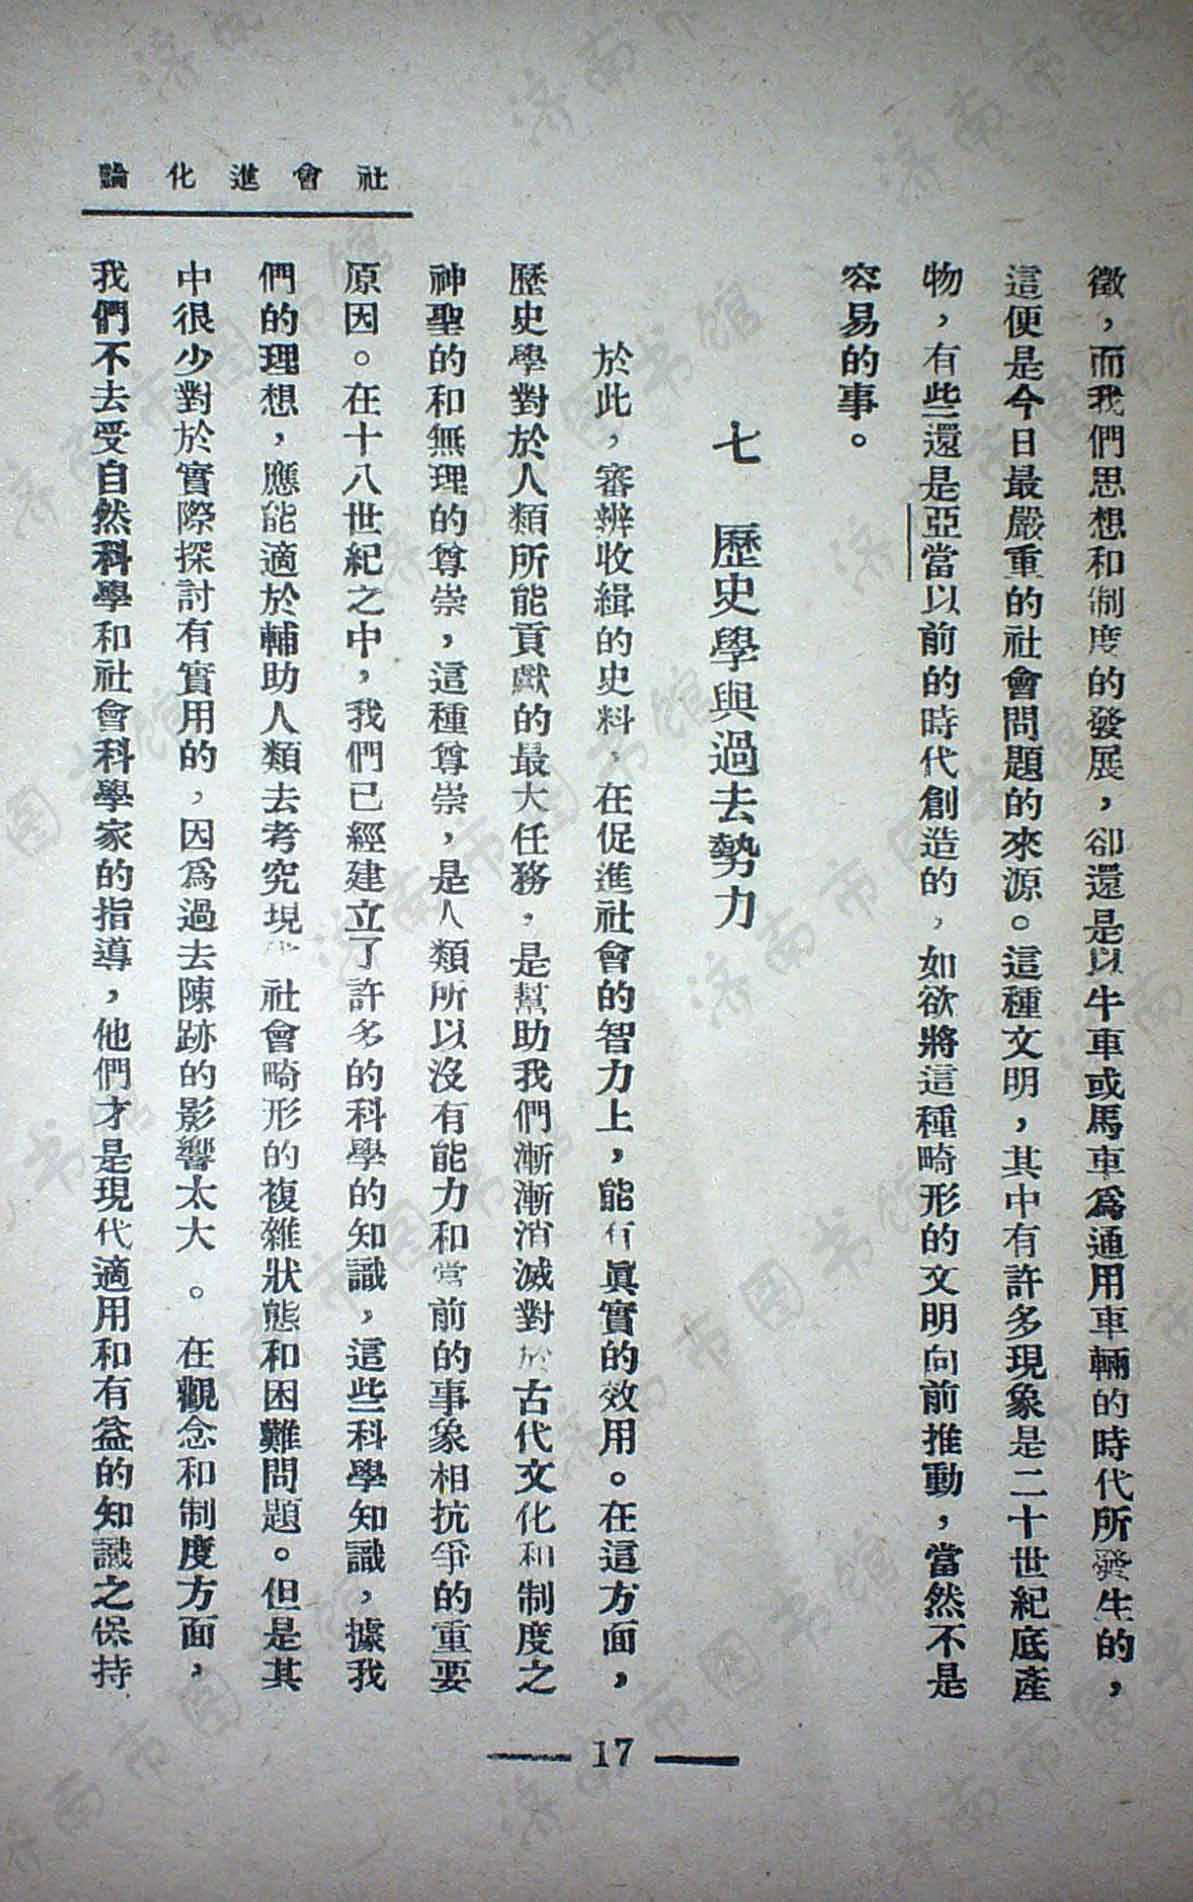 社會進化論
徵，而我們思想和制度的發展，卻還是以牛車或馬車爲通用車輛的時代所發生的，
這便是今日最嚴重的社會問題的來源。這種文明，其中有許多現象是二十世紀底產
物，有些還是亞當以前的時代創造的，如欲將這種畸形的文明向前推動，當然不是
容易的事。
七　歷史學與過去勢力
於此，審辨收緝的史料，在促進社會的智力上，能有眞實的效用。在這方面，
歷史學對於人類所能貢獻的最大任務，是幫助我們漸漸消滅對於古代文化和制度之
神聖的和無理的尊崇，這種尊崇，是人類所以沒有能力和當前的事象相抗爭的重要
原因。在十八世紀之中，我們已經建立了許多的科學的知識，這些科學知識，據我
們的理想，應能適於輔助人類去考究現 社會畸形的複雜狀態和困難問題。但是其
中很少對於實際探討有實用的，因爲過去陳跡的影響太大。在觀念和制度方面，
我們不去受自然科學和社會科學家的指導，他們才是現代適用和有益的知識之保持
17
济南市图书馆